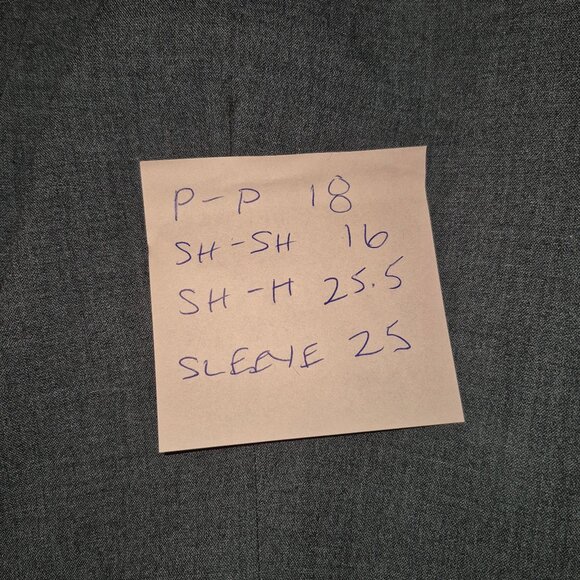 P-P 18
SH-SH 16
SH-H 25.5
SLEEVE 25